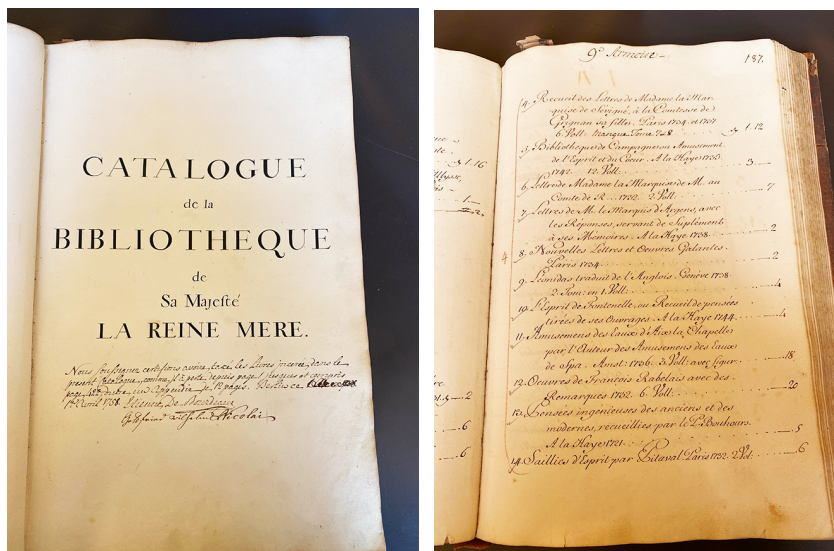 CATALOGUE
de la
BIBLIOTHEQUE
de
Sa Majesté
LA REINE MERE.
Nous soussignés certifions avoir taxé les Livres inserés dans le
present Catalogue, comme il
page
1758. Etienne De Bourdeaux
Nicolai
1-16
1.
2.
2
6
6
9e Armoire
187.
4. Recueil des Lettres de Madame la Mar-
quise de Sevigné, à la Comtesse de
Grignan sa fille. Paris 1734 et 1737.
6. Voll: manque Tome 7 et 8 1-12
5. Bibliotheque de Campagne ou Amusemens
de l'Esprit et du Coeur. A la Haye 1735
1742. 12. Voll: 3
6. Lettre de Madame la Marquise de M. au
Comte de R... 1732. 2. Voll:
7. Lettres de M. le Marquis d'Argens, avec
les Réponses, servant de Suplément
à ses Mémoires. A la Haye 1738. 2
8. Nouvelles Lettres et Oeuvres Galantes.
Paris 1734. 2
9. Leonidas traduit de l'Anglois. Genève 1738.
2. Tom: en 1. Voll: 4
10. L'Esprit de Fontenelle, ou Recueil de pensées
tirées de ses Ouvrages. A la Haye 1744. 4
11. Amusemens des Eaux d'Aix la Chapelle
par l'Auteur des Amusemens des Eaux
de Spa. Amst: 1736. 3. Voll: avec figur. 18
12. Oeuvres de Francois Rabelais avec des
Remarques 1732. 6. Voll: 20
13. Pensées ingenieuses des anciens et des
modernes, recueillies par le P. Bouhours.
A la Haye 1721. 5
14. Saillies d'Esprit par Pitaval Paris 1732. 2 Vol. 6